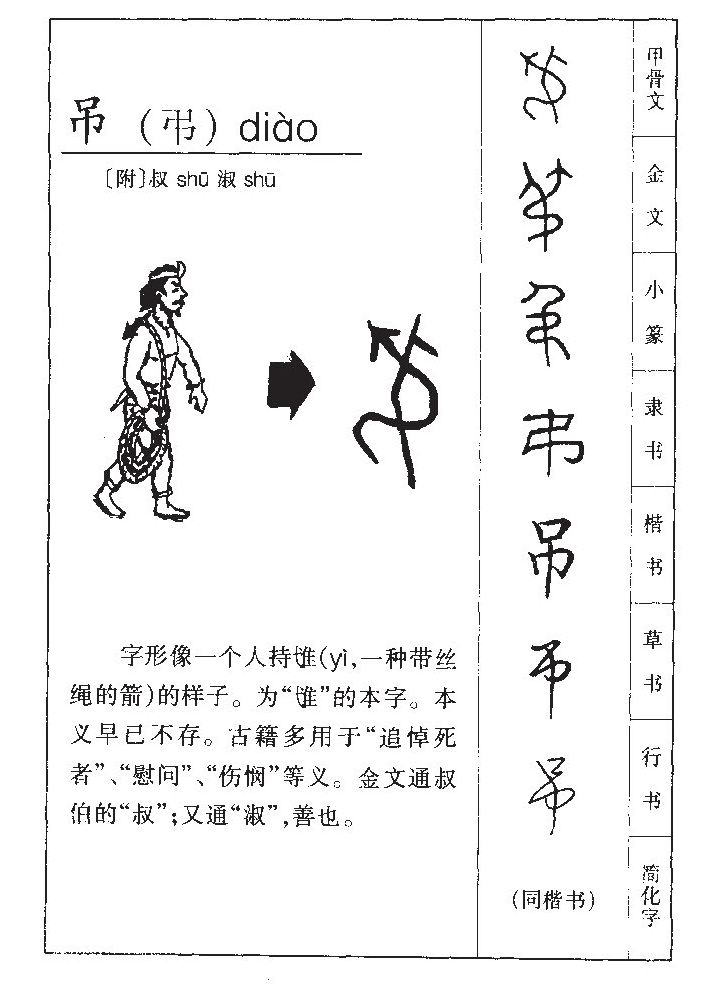 吊 (弔) diào
〔附〕叔 shū 淑 shū
字形像一个人持隿(yì,一种带丝
绳的箭)的样子。为“隿”的本字。本
义早已不存。古籍多用于“追悼死
者”、“慰问”、“伤悯”等义。金文通叔
伯的“叔”;又通“淑”,善也。
甲骨文
金文
小篆
弔
隶书
吊
楷书
吊
草书
吊
行书
(同楷书)
简化字